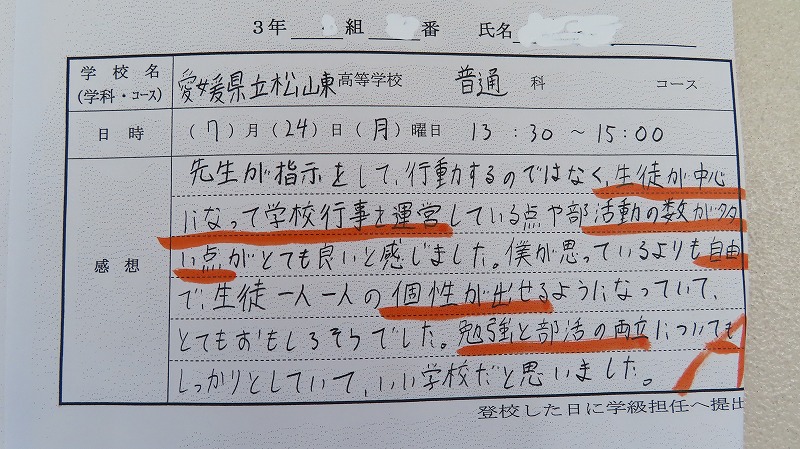 3年 組 番 氏名
学校名 愛媛県立松山東高等学校 普通 科 コース
(学科・コース)
日時 (7)月(24)日(月)曜日 13:30～15:00
先生が指示をして、行動するのではなく、生徒が中心
になって学校行事を運営している点や部活動の数が多
い点がとても良いと感じました。僕が思っているよりも自由
感想
で、生徒一人一人の個性が出せるようになっていて、
とてもおもしろそうでした。勉強と部活の両立についても
しっかりとしていて、いい学校だと思いました。
A
登校した日に学級担任へ提出